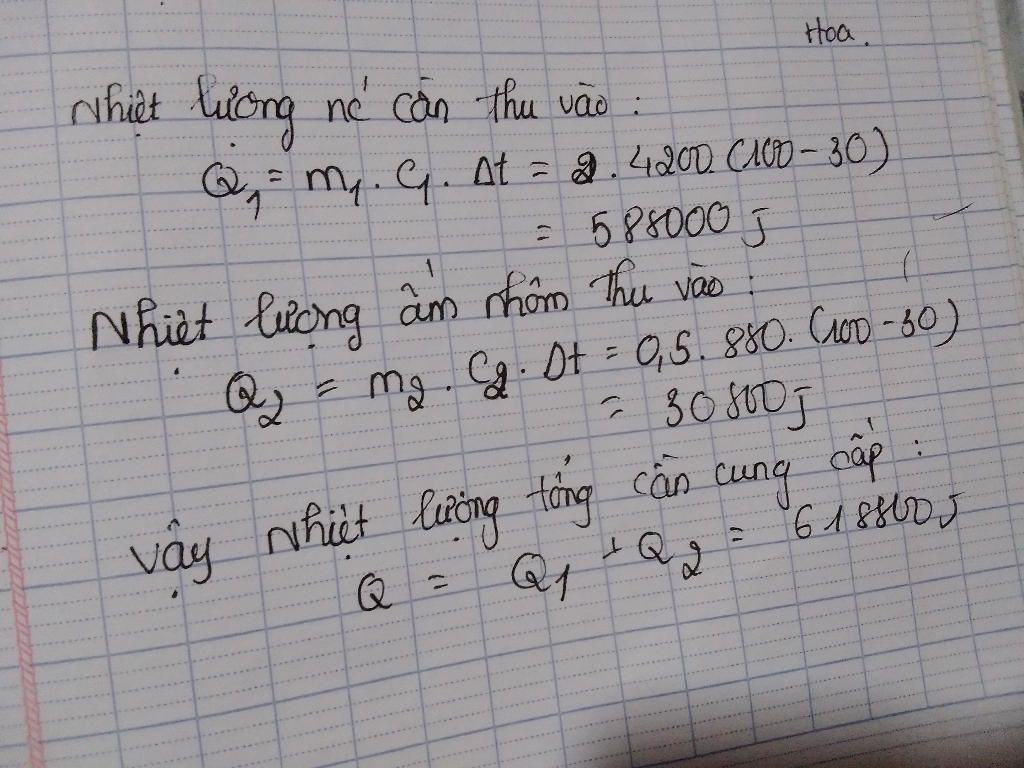 Hoa.
Nhiệt lượng nc cần thu vào :
Q1 = m1 . C1 . Δt = 2 . 4200. (100 - 30)
= 588000 J
Nhiệt lượng ấm nhôm thu vào :
Q2 = m2 . C2 . Δt = 0,5. 880. (100 - 30)
= 30800 J
Vậy nhiệt lượng tổng cần cung cấp :
Q = Q1 + Q2 = 618800 J